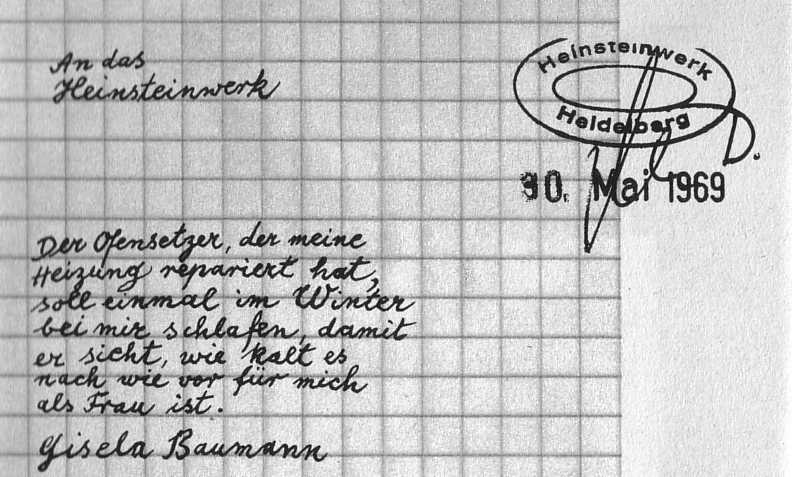 An das
Heinsteinwerk
Heinsteinwerk
Heidelberg
30. Mai 1969
Der Ofensetzer, der meine
Heizung repariert hat,
soll einmal im Winter
bei mir schlafen, damit
er sieht, wie kalt es
nach wie vor für mich
als Frau ist.
Gisela Baumann